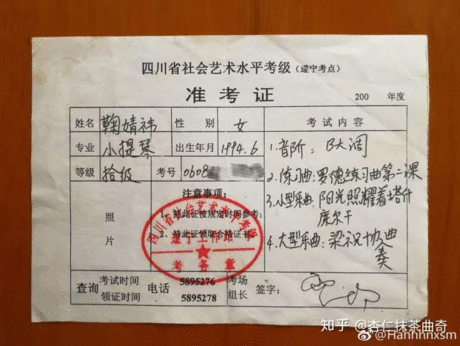 四川省社会艺术水平考级（遂宁考点）
准考证
200 年度
姓名 鞠婧祎 性别 女 考试内容
专业 小提琴 出生年月 1994.6
等级 拾级 考号 0608
1.音阶：B大调
2.练习曲：罗德练习曲第二课
3.小型乐曲：阳光照耀着塔什库尔干
4.大型乐曲：梁祝协曲奏
照片
注意事项：
1、持此证按规定时间参考；
2、持此证领取合格证书。
四川省社会艺术水平考级
遂宁工作站
考务章
查询 考试时间 电话 5895276 考场
领证时间 5895278 组长 签字：
知乎 @杏仁抹茶曲奇
@Hannnnxsm